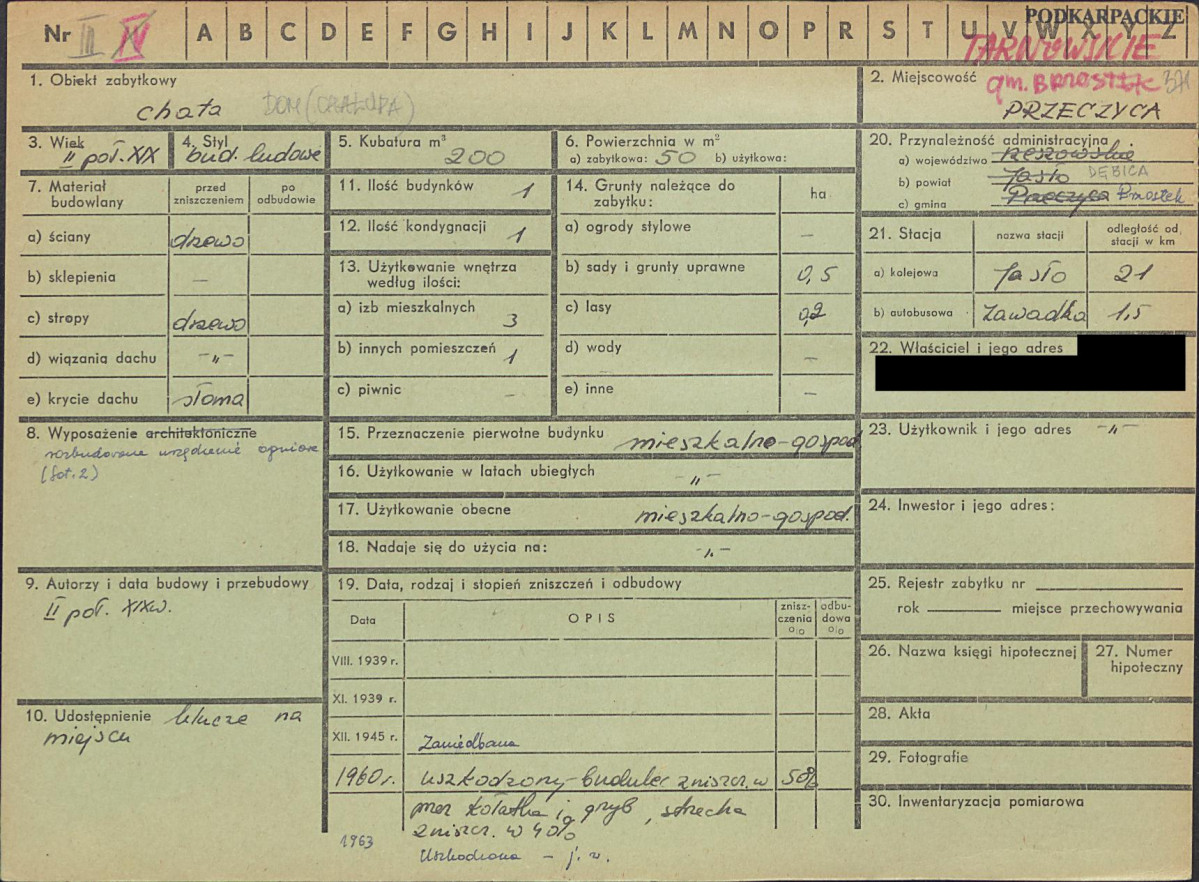 PODKARPACKIE
Nr III IV A B C D E F G H I J K L M N O P R S T U V W X Y Z
TARNOWSKIE
gm. BRZOSTEK 371
1. Obiekt zabytkowy
chata DOM (CHAŁUPA)
2. Miejscowość
PRZECZYCA
3. Wiek
II poł. XIX
4. Styl
bud. ludowe
5. Kubatura m³
200
6. Powierzchnia w m²
a) zabytkowa: 50 b) użytkowa:
20. Przynależność administracyjna
a) województwo rzeszowskie
b) powiat Jasło DĘBICA
c) gmina Przeczyca Brzostek
7. Materiał budowlany
przed zniszczeniem
po odbudowie
a) ściany drzewo
b) sklepienia —
c) stropy drzewo
d) wiązania dachu -"-
e) krycie dachu słoma
11. Ilość budynków 1
12. Ilość kondygnacji 1
13. Użytkowanie wnętrza według ilości:
a) izb mieszkalnych 3
b) innych pomieszczeń 1
c) piwnic —
14. Grunty należące do zabytku: ha
a) ogrody stylowe —
b) sady i grunty uprawne 0,5
c) lasy 0,2
d) wody —
e) inne —
21. Stacja nazwa stacji odległość od stacji w km
a) kolejowa Jasło 21
b) autobusowa Zawadka 1,5
22. Właściciel i jego adres
8. Wyposażenie architektoniczne
rozbudowane urządzenie ogniowe
(fot. 2)
15. Przeznaczenie pierwotne budynku mieszkalno-gospod.
16. Użytkowanie w latach ubiegłych -"-
17. Użytkowanie obecne mieszkalno-gospod.
18. Nadaje się do użycia na: -"-
23. Użytkownik i jego adres -"-
24. Inwestor i jego adres:
9. Autorzy i data budowy i przebudowy
II poł. XIX w.
19. Data, rodzaj i stopień zniszczeń i odbudowy
Data OPIS zniszczenia % odbudowa %
VIII. 1939 r.
XI. 1939 r.
XII. 1945 r. Zaniedbana
1960 r. uszkodzony - budulec zniszcz. w 50%
przez kołatka i grzyb, strzecha
zniszcz. w 40%
1963 Uszkodzona - j. w.
10. Udostępnienie klucze na
miejscu
25. Rejestr zabytku nr
rok miejsce przechowywania
26. Nazwa księgi hipotecznej
27. Numer hipoteczny
28. Akta
29. Fotografie
30. Inwentaryzacja pomiarowa